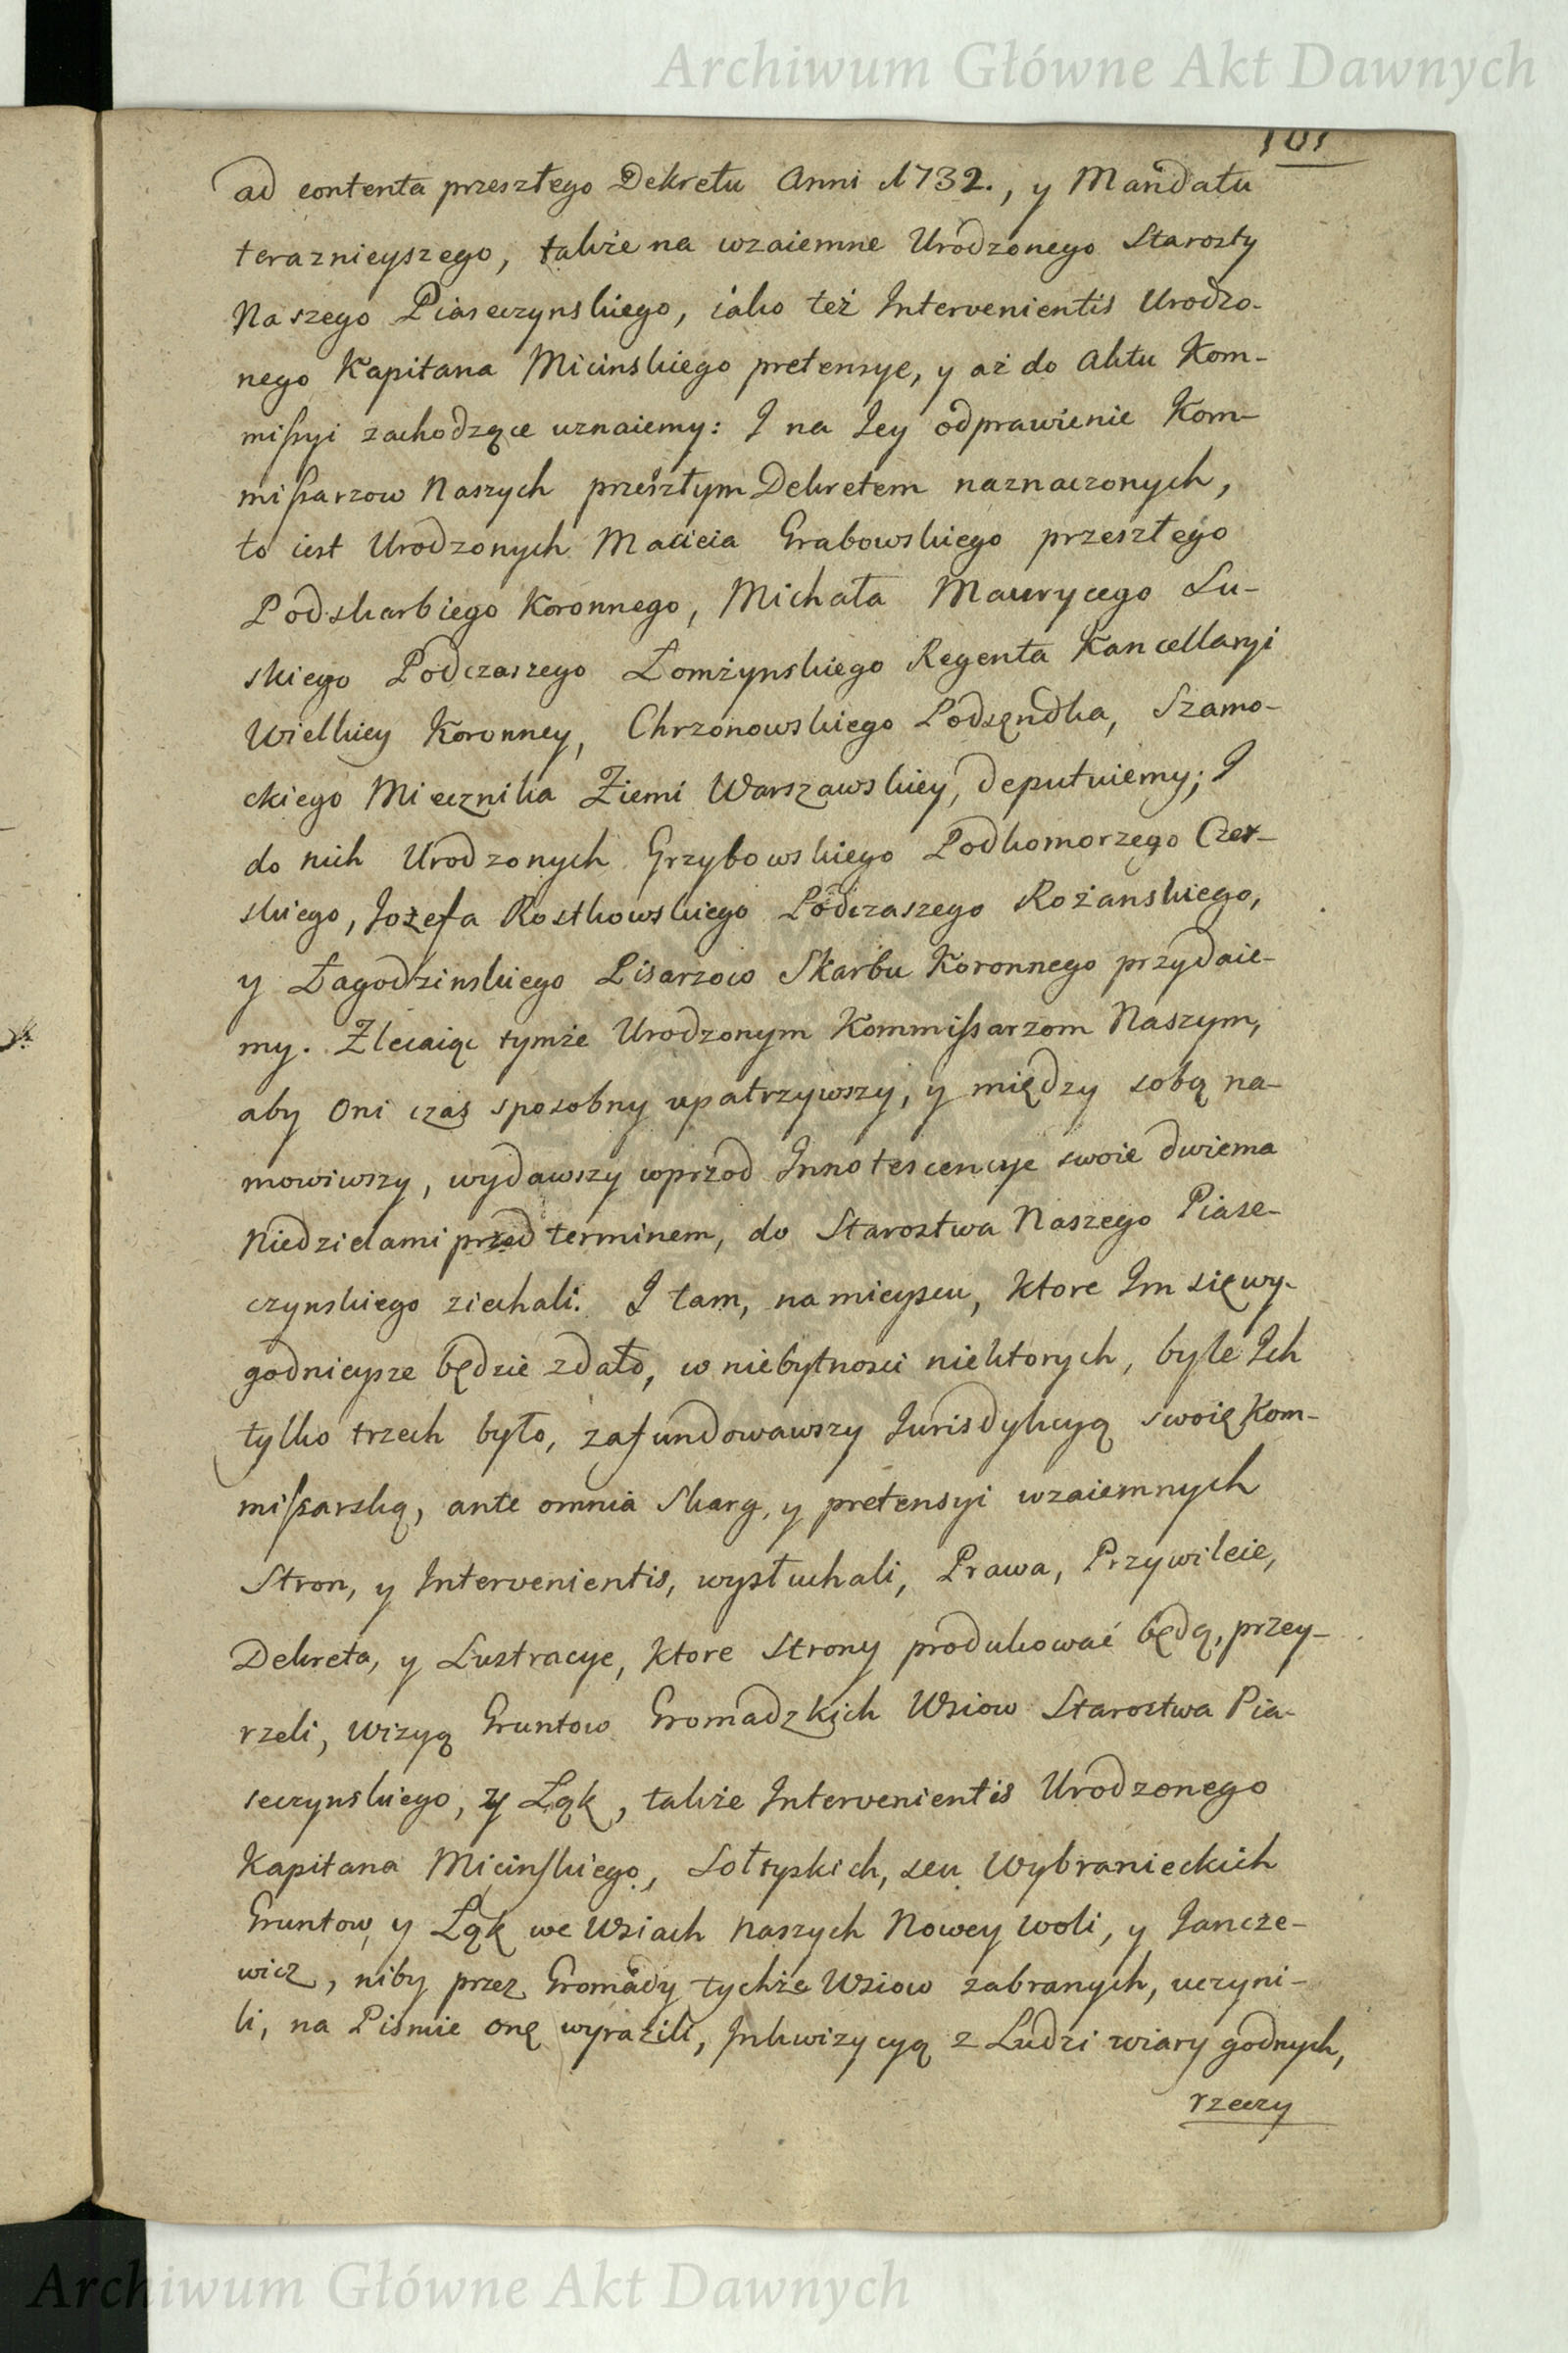 Archiwum Główne Akt Dawnych
101
ad contenta przeszłego Dekretu Anni 1732., y Mandatu
teraznieyszego, także na wzaiemne Urodzonego Starosty
Naszego Piaseczynskiego, iako też Intervenientis Urodzo-
nego Kapitana Micinskiego pretensye, y aż do Aktu Kom-
mißyi zachodzące uznaiemy: I na Iey odprawienie Kom-
mißarzow Naszych przeszłym Dekretem naznaczonych,
to iest Urodzonych Macieia Grabowskiego przeszłego
Podskarbiego Koronnego, Michała Maurycego Su-
skiego Podczaszego Łomżynskiego Regenta Kancellaryi
Wielkiey Koronney, Chrzonowskiego Podsęndka, Szamo-
ckiego Miecznika Ziemi Warszawskiey, deputuiemy; I
do nich Urodzonych Grzybowskiego Podkomorzego Czer-
skiego, Jozefa Rostkowskiego Podczaszego Rożanskiego,
y Łagodzinskiego Pisarzow Skarbu Koronnego przydaie-
my. Zlecaiąc tymże Urodzonym Kommißarzom Naszym,
aby Oni czas sposobny upatrzywszy, y między sobą na-
mowiwszy, wydawszy wprzod Innotescencye swoie dwiema
Niedzielami przed terminem, do Starostwa Naszego Piase-
czynskiego ziechali. I tam, na mieyscu, ktore Im się wy-
godnieysze będzie zdało, w niebytnosci niektorych, byle Ich
tylko trzech było, zafundowawszy Iurisdykcyą swoię Kom-
mißarską, ante omnia Skarg, y pretensyi wzaiemnych
Stron, y Intervenientis, wysłuchali, Prawa, Przywileie,
Dekreta, y Lustracye, ktore Strony produkować będą, przey-
rzeli, Wizyą Gruntow Gromadzkich Wsiow Starostwa Pia-
seczynskiego, y Łąk, także Intervenientis Urodzonego
Kapitana Micinskiego, Sołtyskich, seu Wybranieckich
Gruntow, y Łąk we Wsiach Naszych Nowey woli, y Jancze-
wicz, niby przez Gromady tychże Wsiow zabranych, uczyni-
li, na Pismie onę wyrazili, Inkwizycyą z Ludzi wiary godnych,
rzeczy
Archiwum Główne Akt Dawnych